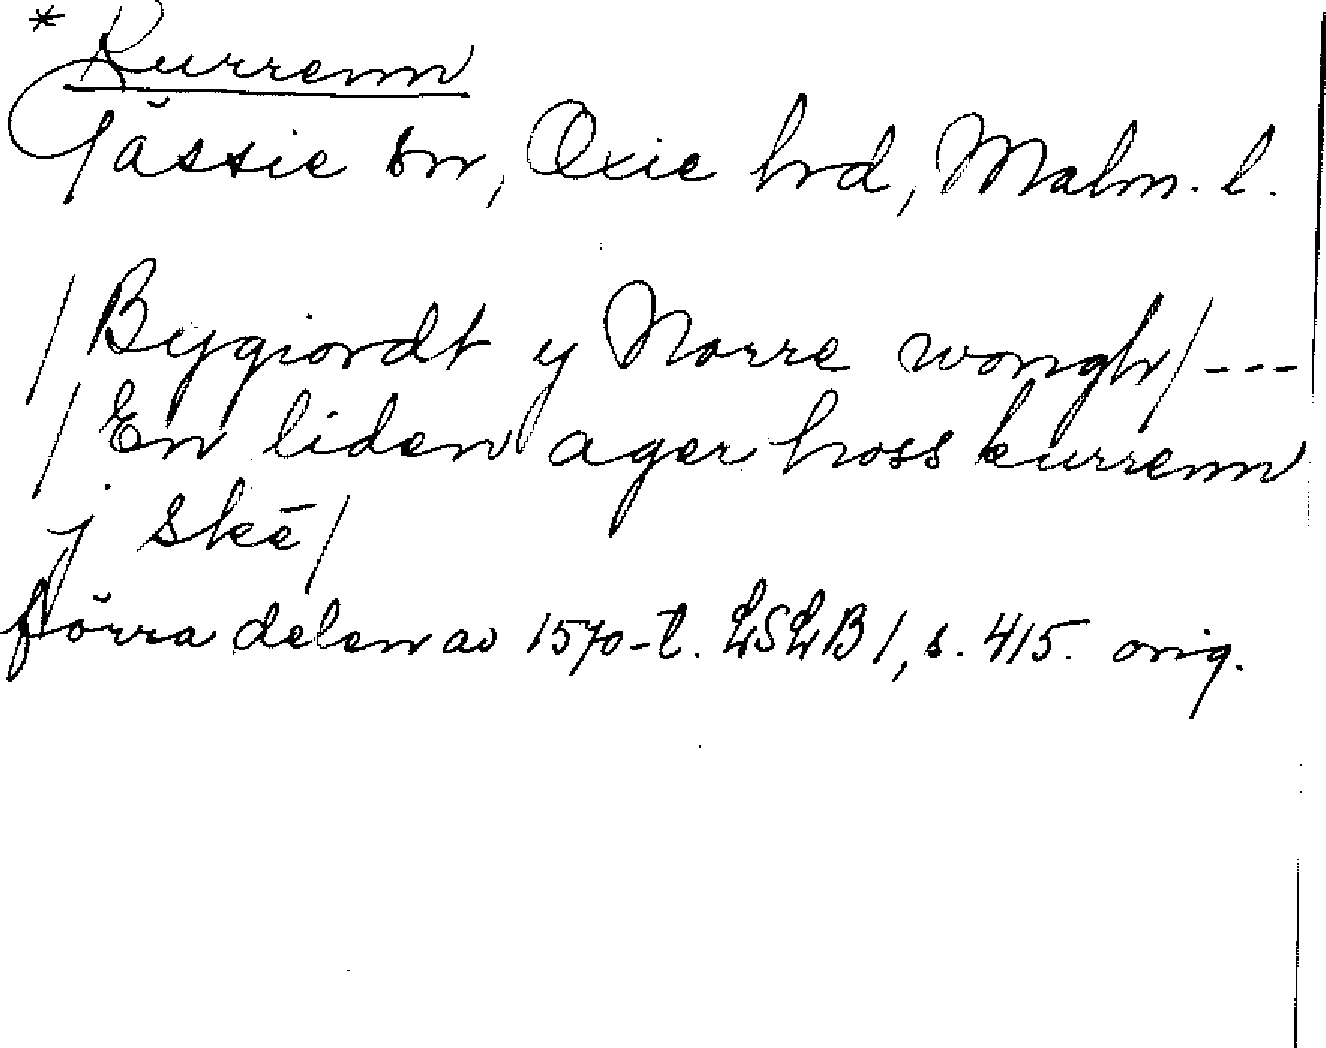 * Kurrenn
Gässie sn, Oxie hrd, Malm. l.
/Bygiordt y Norre wongh/---
/En liden ager hoss kurrenn
j skē/
förra delen av 1570-t. LSLB 1, s. 415. orig.